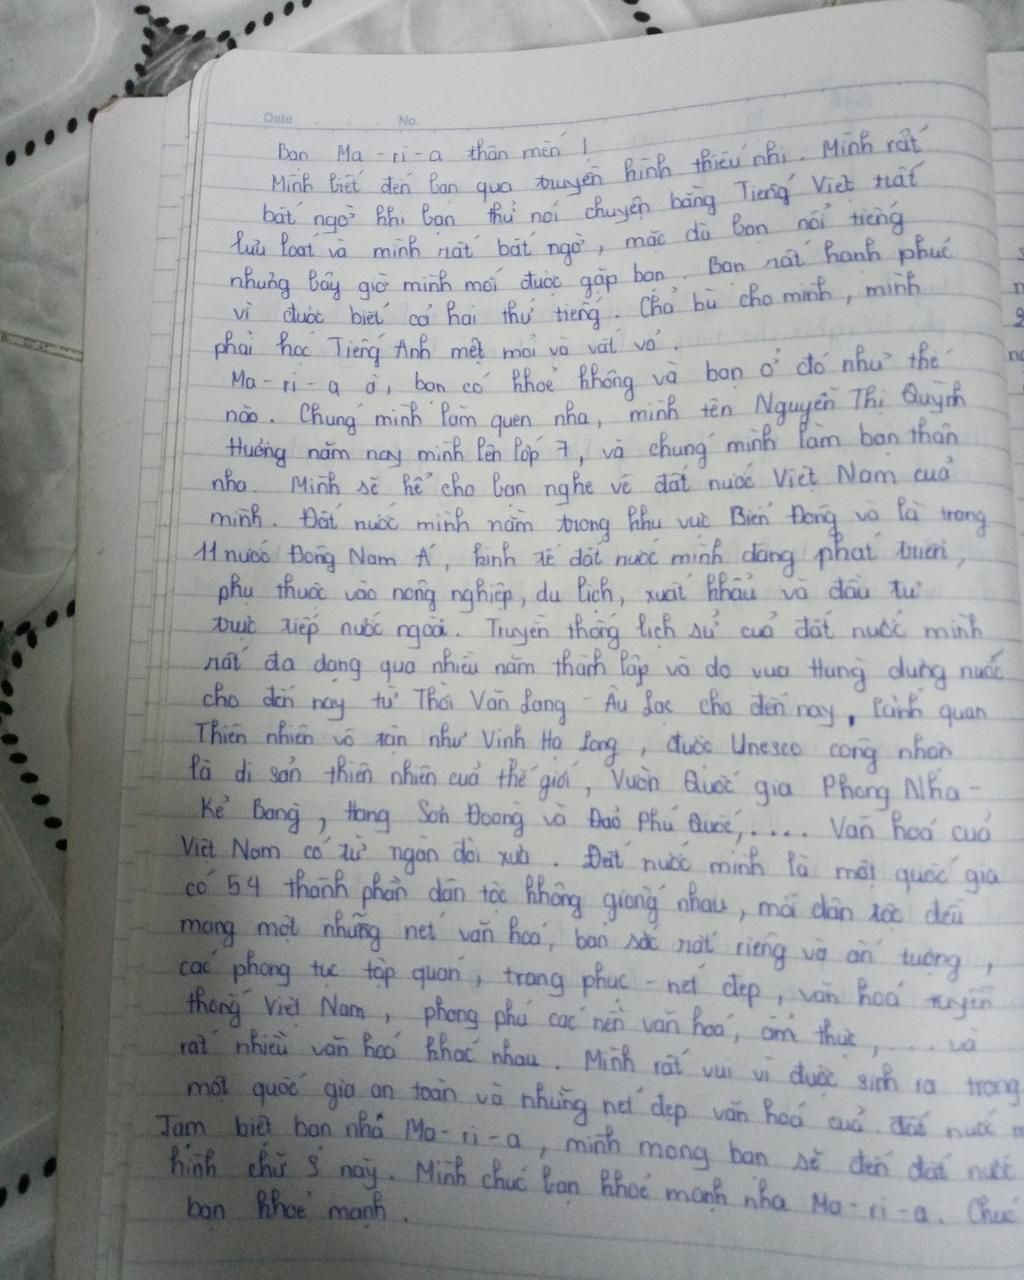 Date No.
Bạn Ma-ri-a thân mến!
Mình biết đến bạn qua truyền hình thiếu nhi. Mình rất
bất ngờ khi bạn thử nói chuyện bằng Tiếng Việt rất
lưu loát và mình rất bất ngờ, mặc dù bạn nổi tiếng
nhưng bây giờ mình mới được gặp bạn. Bạn rất hạnh phúc
vì được biết cả hai thứ tiếng. Chả bù cho mình, mình
phải học Tiếng Anh mệt mỏi và vất vả.
Ma-ri-a à, bạn có khoẻ không và bạn ở đó như thế
nào. Chúng mình làm quen nha, mình tên Nguyễn Thị Quỳnh
Hương năm nay mình lên lớp 7, và chúng mình làm bạn thân
nha. Mình sẽ kể cho bạn nghe về đất nước Việt Nam của
mình. Đất nước mình nằm trong khu vực Biển Đông và là trong
11 nước Đông Nam Á, kinh tế đất nước mình đang phát triển,
phụ thuộc vào nông nghiệp, du lịch, xuất khẩu và đầu tư
trực tiếp nước ngoài. Truyền thống lịch sử của đất nước mình
rất đa dạng qua nhiều năm thành lập và do vua Hùng dựng nước
cho đến nay từ Thời Văn Lang - Âu Lạc cho đến nay, cảnh quan
Thiên nhiên vô tận như Vịnh Hạ Long, được Unesco công nhận
là di sản thiên nhiên của thế giới, Vườn Quốc gia Phong Nha -
Kẻ Bàng, Hang Sơn Đoòng và Đảo Phú Quốc,.... Văn hoá của
Việt Nam có từ ngàn đời xưa. Đất nước mình là một quốc gia
có 54 thành phần dân tộc không giống nhau, mỗi dân tộc đều
mang một những nét văn hoá, bản sắc rất riêng và ấn tượng,
các phong tục tập quán, trang phục - nét đẹp, văn hoá truyền
thống Việt Nam, phong phú các nền văn hoá, ẩm thực,.... và
rất nhiều văn hoá khác nhau. Mình rất vui vì được sinh ra trong
một quốc gia an toàn và những nét đẹp văn hoá của đất nước
Tạm biệt bạn nhá Ma-ri-a, mình mong bạn sẽ đến đất nước
hình chữ S này. Mình chúc bạn khoẻ mạnh nha Ma-ri-a. Chúc
bạn khoẻ mạnh.